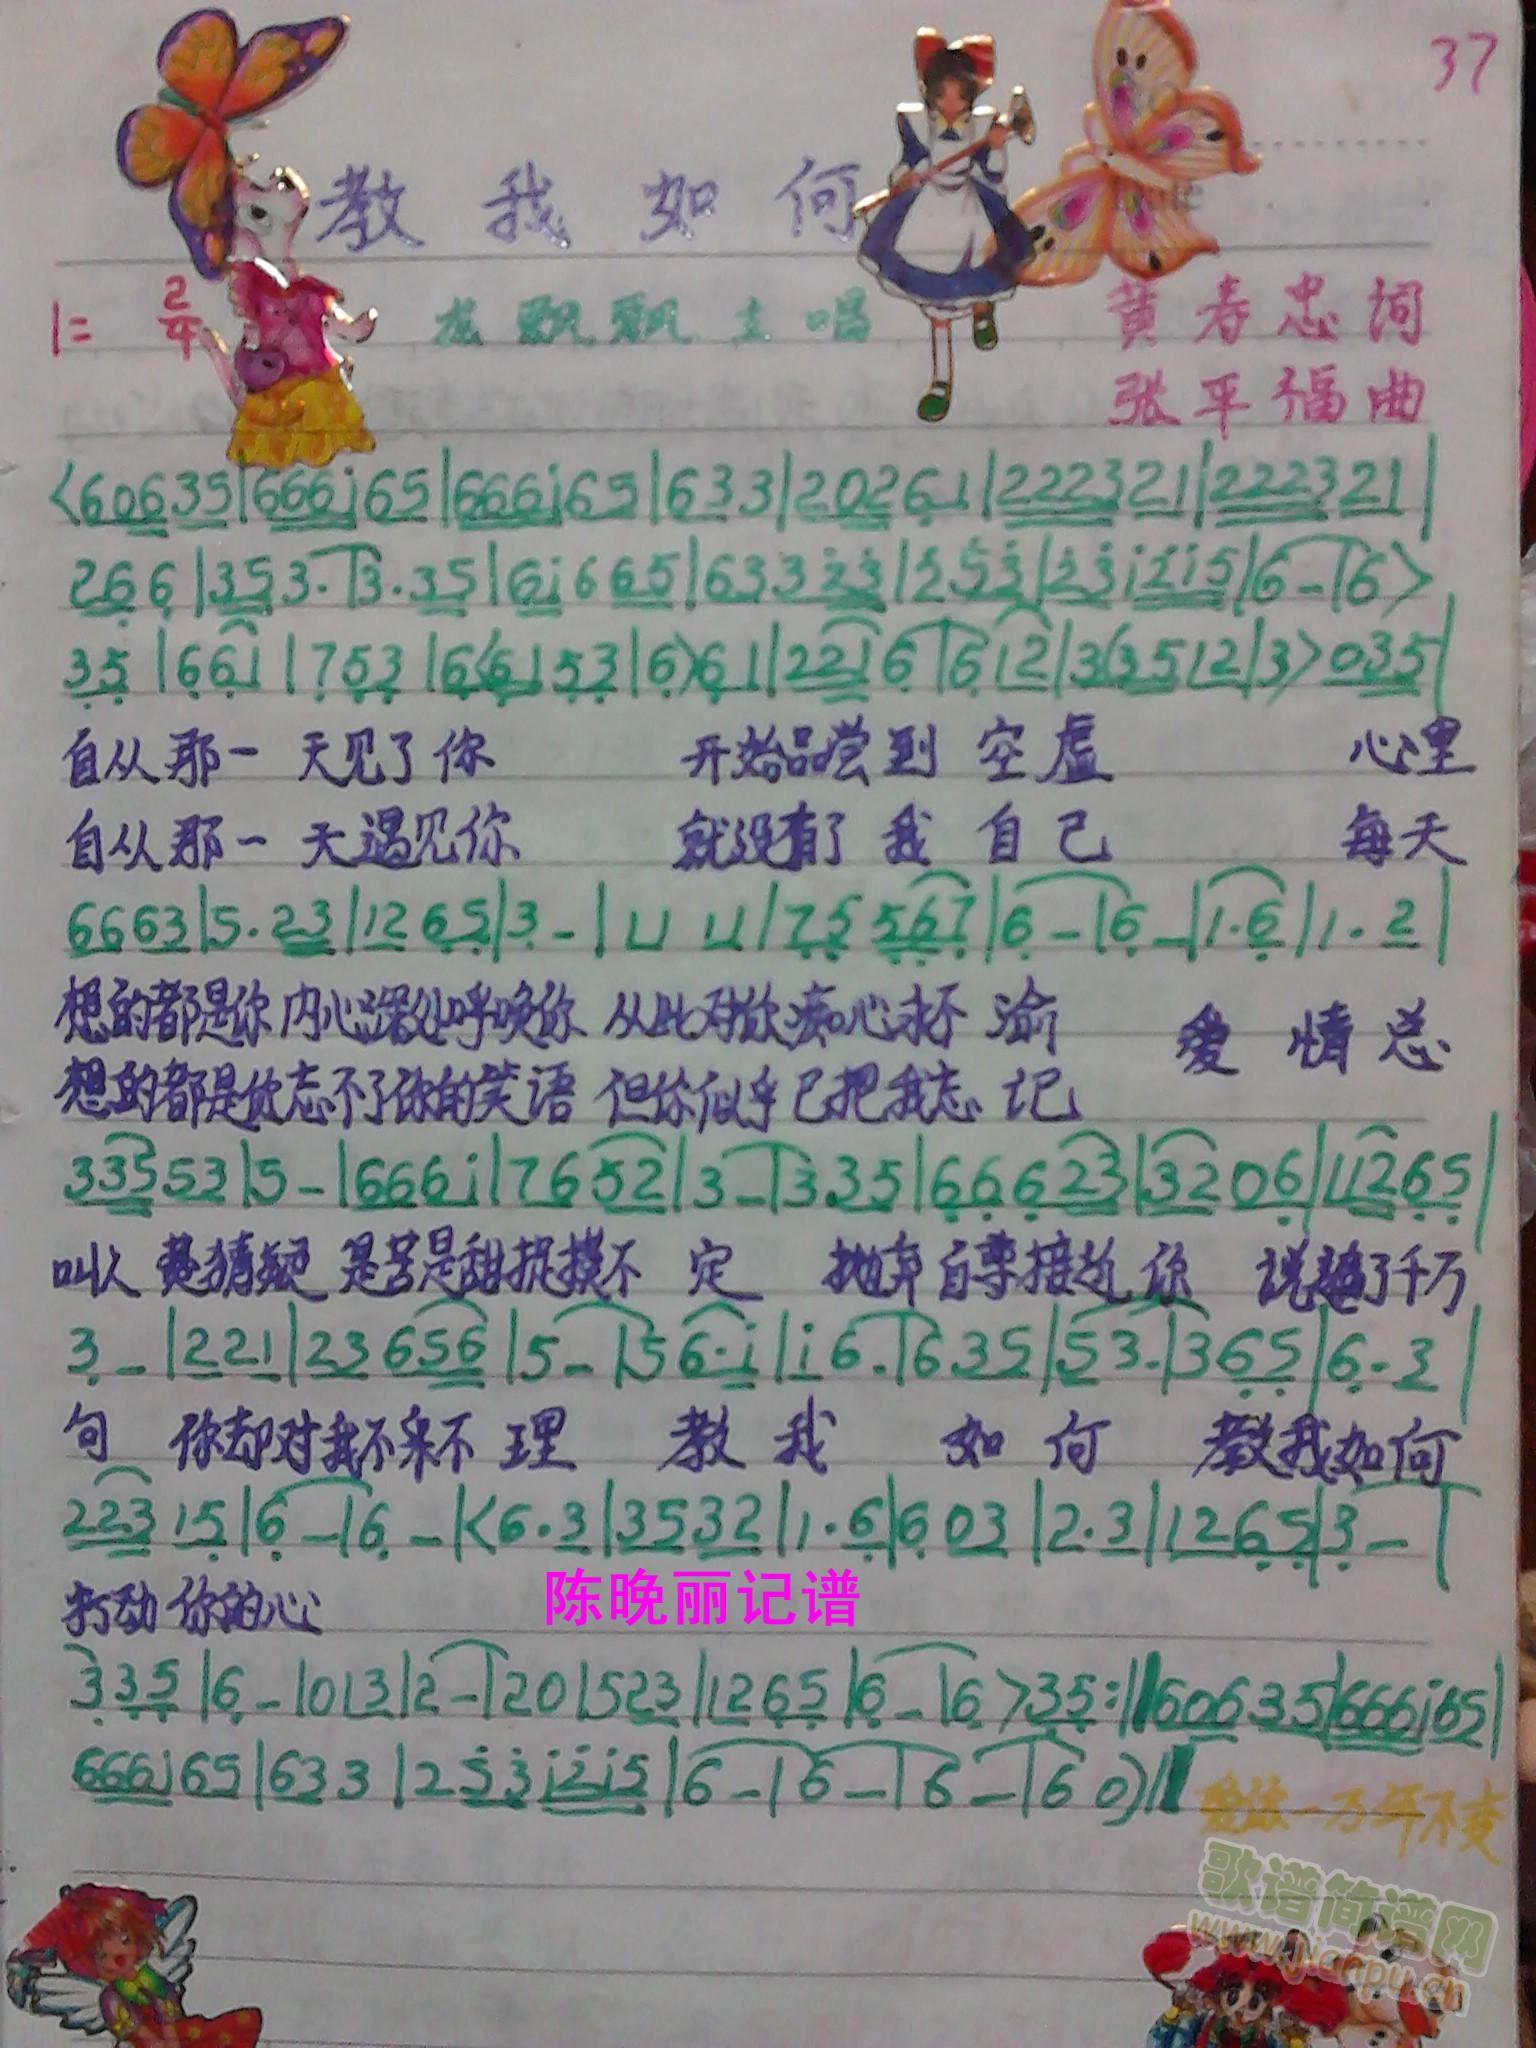 37
教我如何
1= 2/4 龙飘飘主唱 黄春忠词
张平福曲
<60635|666i65|666i65|633|20261|222321|222321|
266|353.|3.35|6i665|63323|253|23i2i5|6-|6>
35|661|753|6<6153|6>61|2216|612|3<3512|3>035|
自从那一天见了你 开始品尝到空虚 心里
自从那一天遇见你 就没有了我自己 每天
6663|5.23|1265|3-|11 11|75567|6-|6-|1.6|1.2|
想的都是你内心深处呼唤你 从此对你痴心永不渝 爱情总
想的都是你忘不了你的笑语 但你似乎已把我忘记
33553|5-|666i|7652|3-|335|66623|3206|11265|
叫人 猜疑 是苦是甜捉摸不定 抛弃自尊接近你 说了千万
3-|221|23656|5-|56.i|i6.|635|53.|365|6.3|
句 你却对我不采不理 教我如何 教我如何
22315|6-|6-|<6.3|3532|1.6|603|2.3|1265|3-|
打动你的心
陈晚丽记谱
335|6-|013|2-|20|523|1265|6-|6>35:||60635|666i65|
666i65|633|253i2i5|6-|6-|6-|60)||
爱你一万年不变
歌谱简谱网
www.jianpu.cn